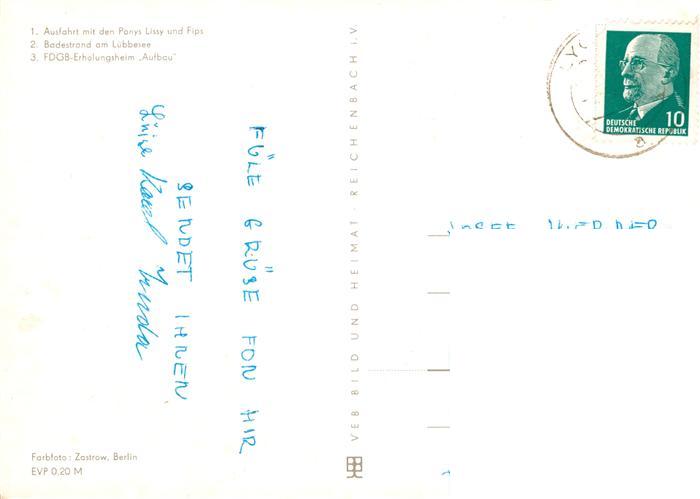 1. Ausfahrt mit den Ponys Lissy und Fips
2. Badestrand am Lübbesee
3. FDGB-Erholungsheim „Aufbau"
FÜLE GRÜSE FON HIR
SENDET IHNEN
Farbfoto: Zastrow, Berlin
EVP 0,20 M
VEB BILD UND HEIMAT · REICHENBACH I.V.
DEUTSCHE
DEMOKRATISCHE REPUBLIK
10